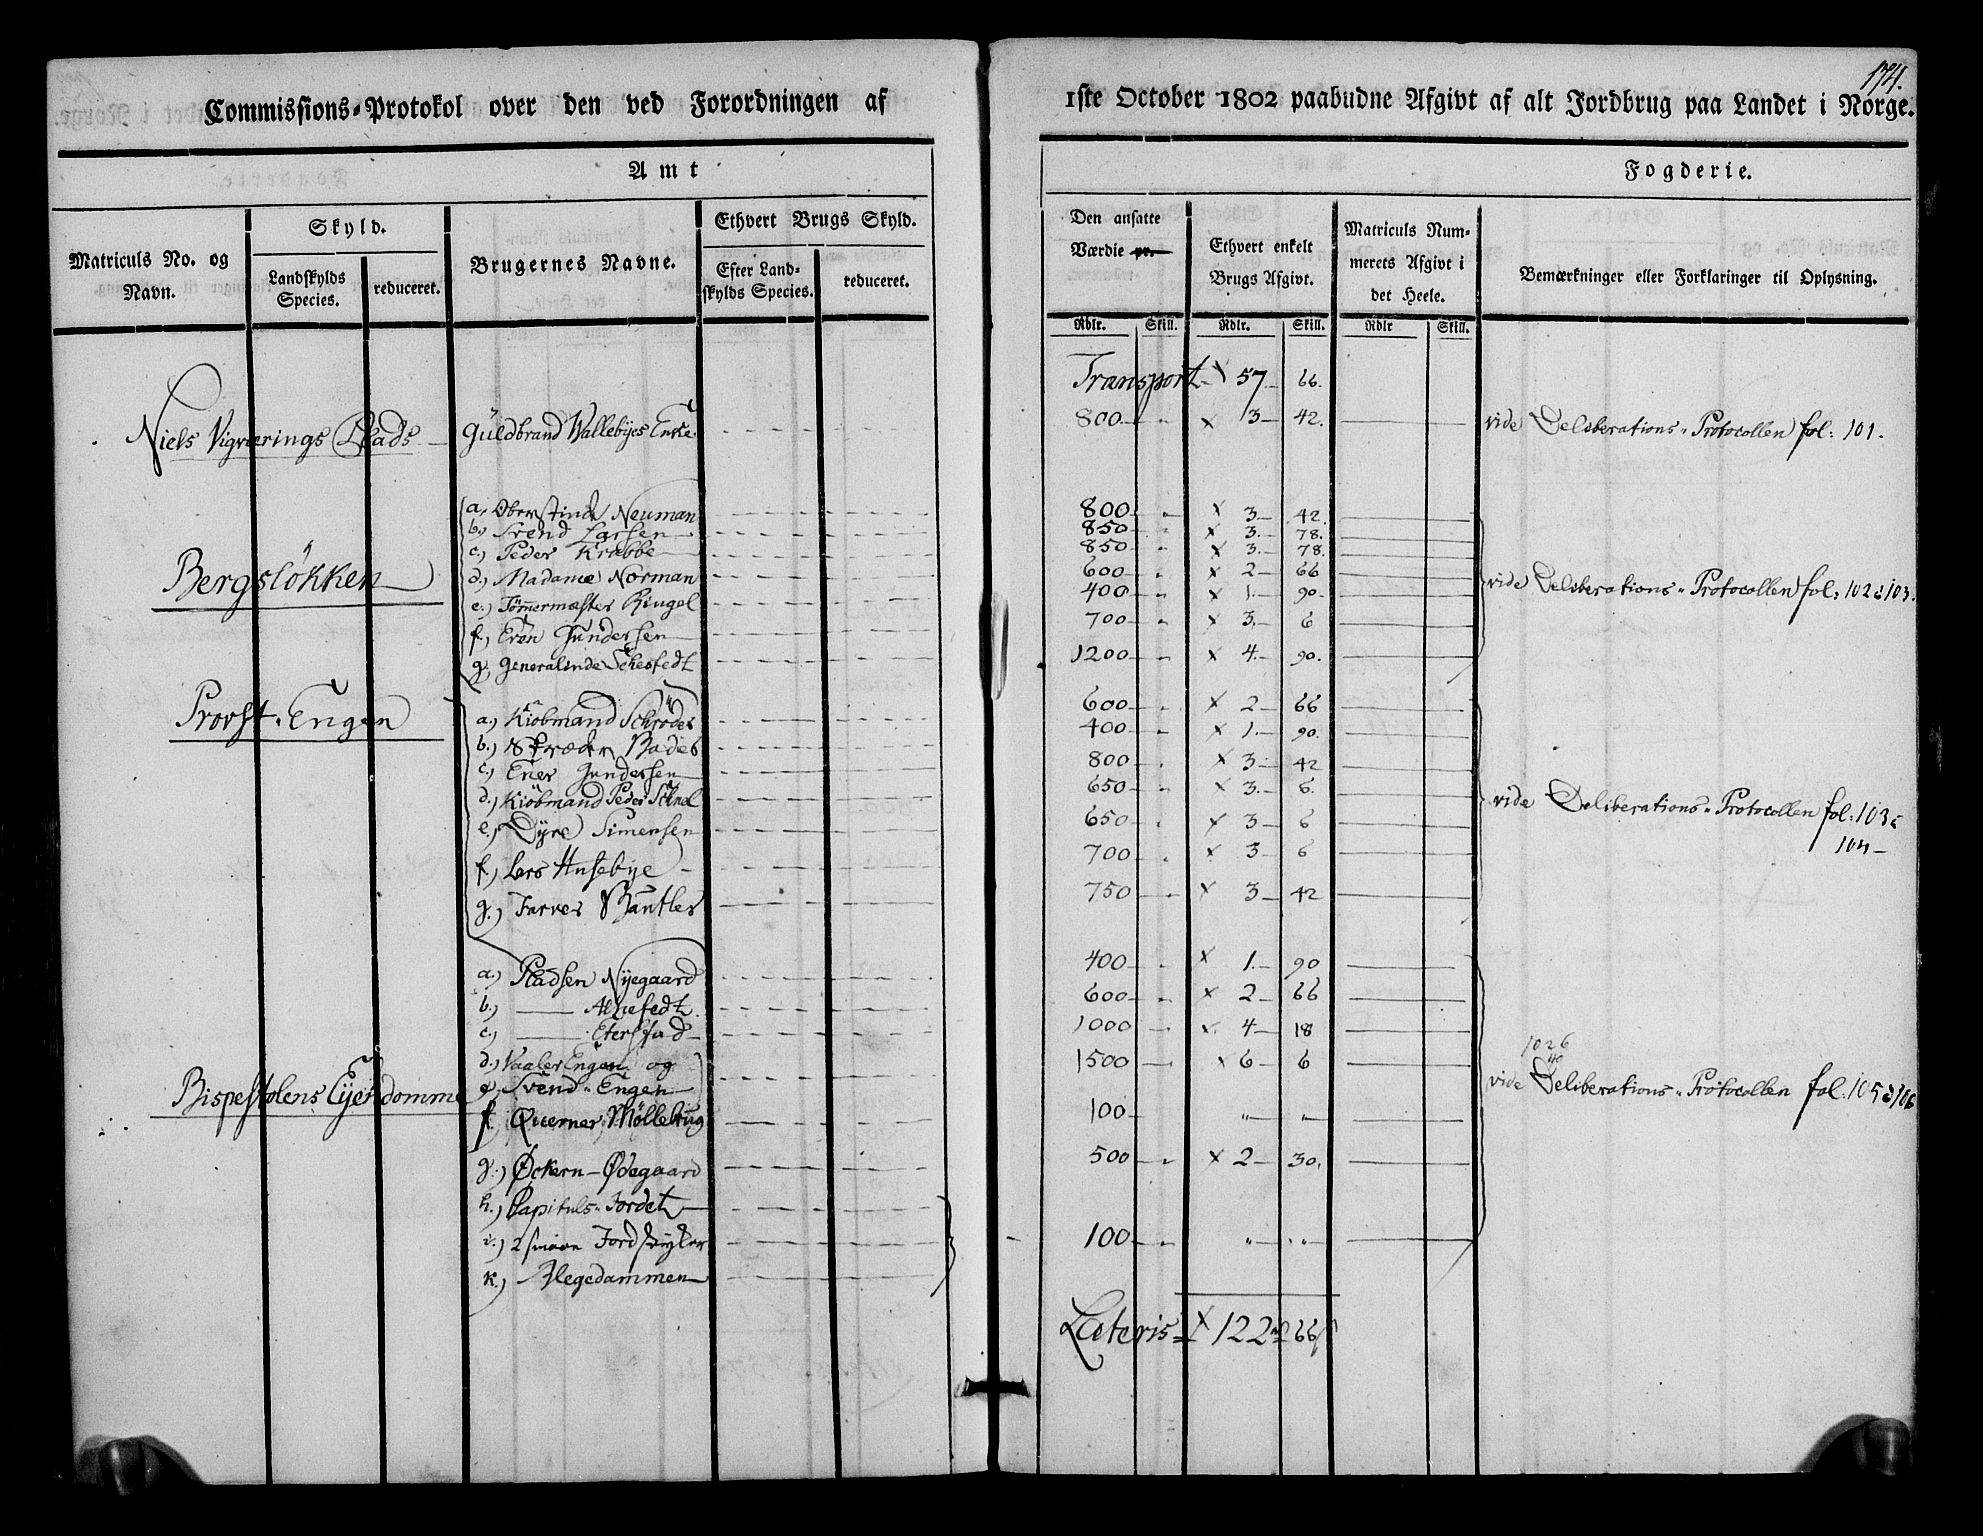 174.
Commissions-Protokol over den ved Forordningen af 1ste October 1802 paabudne Afgivt af alt Jordbrug paa Landet i Norge.
Amt
Fogderie.
Matriculs No. og Navn.
Skyld.
Landskylds Species.
reduceret.
Brugernes Navne.
Ethvert Brugs Skyld.
Efter Landskylds Species.
reduceret.
Den ansatte Værdie pr.
Ethvert enkelt Brugs Afgivt.
Matriculs Nummerets Afgivt i det Heele.
Bemærkninger eller Forklaringer til Oplysning.
Rdlr. Skill. Rdlr. Skill. Rdlr Skill.
Transport x 57 66.
Niels Vigværings Plads Guldbrand Wallebyes Enke 800 " x 3 42. vide Deliberations-Protocollen fol: 101.
Bergsløkken
a, Oberstinde Neuman 800 " x 3 42.
b,) Svend Larsen 850 " x 3. 78.
c,) Peder Krabbe 850 " x 3. 78.
d,) Madame Norman 600 " x 2 66
e,) Tømmermæster Ringel 400 " x 1. 90.
vide Deliberations-Protocollen fol: 102 & 103.
f,) Gundersen 700 " x 3. 6
g, Generalinde 1200 " x 4. 90.
Provst-Engen
a,) Kiøbmand Schrøder 600 " x 2 66
b,) Skræder Bader 400 " x 1. 90.
c,) Ener Gundersen 800 " x 3 42
d,) Kiøbmand Peder 650 " x 3. 6.
vide Deliberations-Protocollen fol: 103 &
104
e,) Dyre Simensen 650 " x 3 6
f,) Lars Husebye 700 " x 3 6
g,) Farver 750 " x 3 42
a,) Pladsen Nyegaard 400 " x 1. 90
b,) —— 600 " x 2 66
c,) —— Eterstad 1000 " x 4 18
Bispestolens Eyendomme
d,) Vaaler Engen og
e,) Svend-Engen 1500 x 6 6
1026
vide Deliberations-Protocollen fol: 105 & 106
f. Querner Møllebrug 100 " "
g,) Øckern-Ødegaard 500 " x 2 30.
h,) Capituls-Jordet
i.) 2 smaae Jordstyker 100 " " "
k,) Alegedammen
Lateris x 122 66